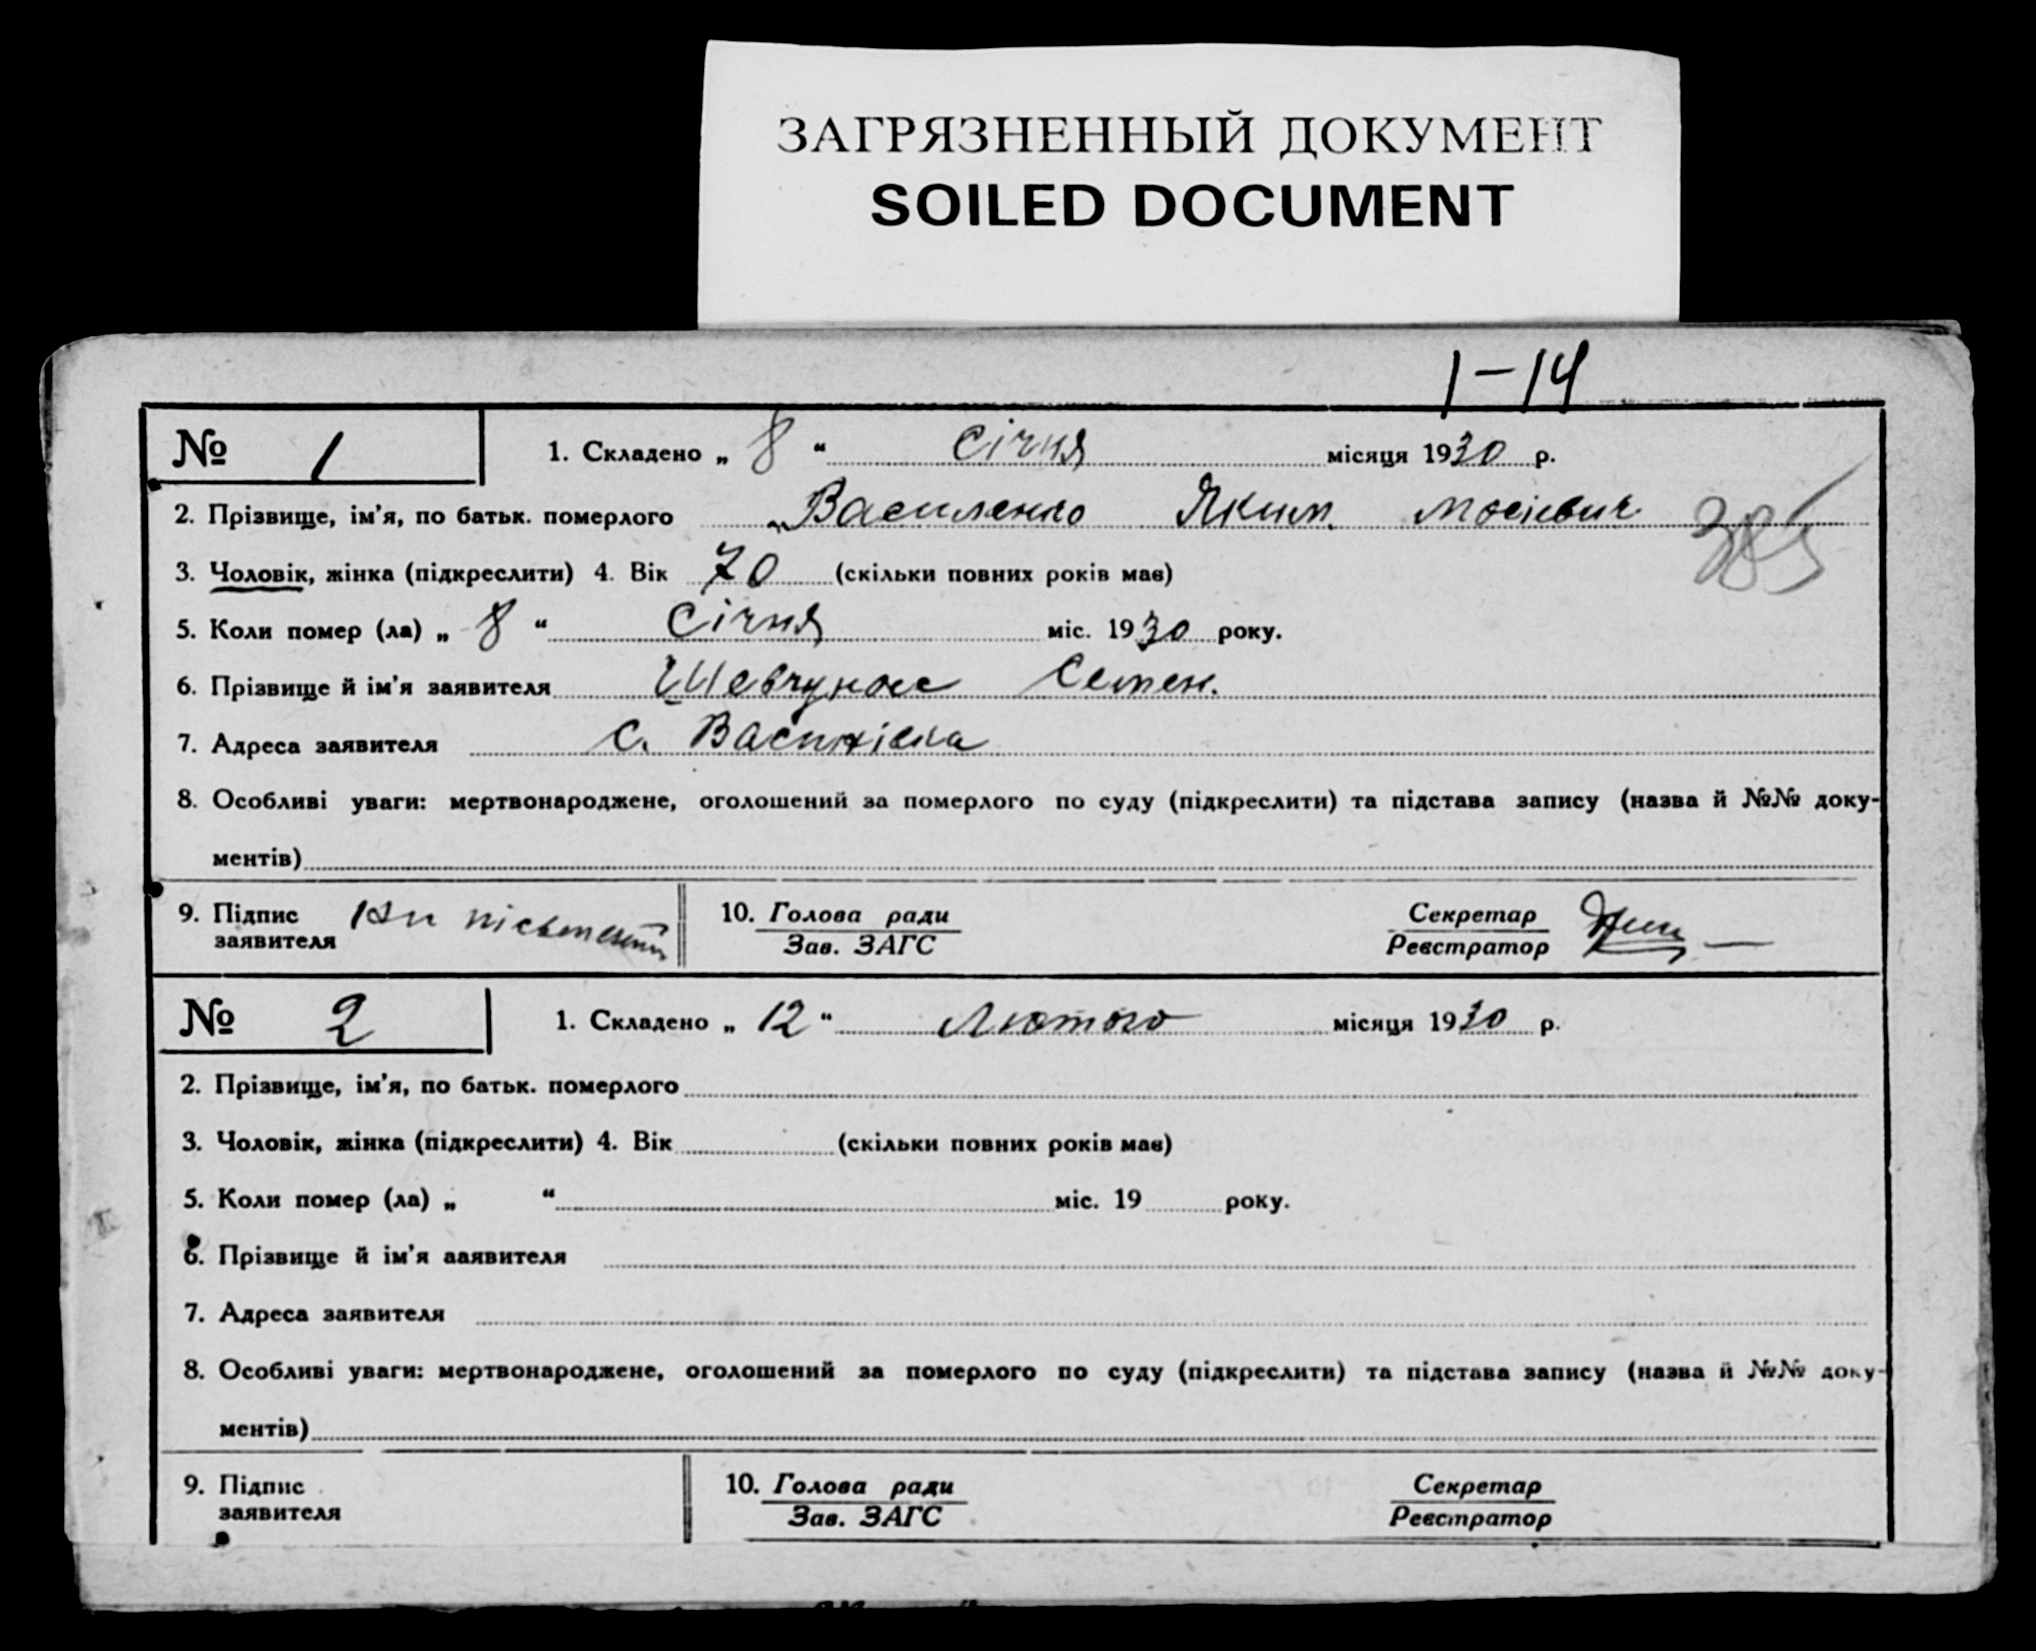 ЗАГРЯЗНЕННЫЙ ДОКУМЕНТ
SOILED DOCUMENT
1-14
№ 1
1. Складено „ 8 “ Січня місяця 1930 р.
2. Прізвище, ім'я, по батьк. померлого Василенко Яким Мосієвич
385
3. Чоловік, жінка (підкреслити) 4. Вік 70 (скільки повних років має)
5. Коли помер (ла) „ 8 “ Січня міс. 1930 року.
6. Прізвище й ім'я заявителя Семен.
7. Адреса заявителя с. Василівка
8. Особливі уваги: мертвонароджене, оголошений за померлого по суду (підкреслити) та підстава запису (назва й №№ доку-
ментів)
9. Підпис
заявителя
10. Голова ради
Зав. ЗАГС
Секретар
Реєстратор
№ 2
1. Складено „ 12 “ Лютого місяця 1930 р.
2. Прізвище, ім'я, по батьк. померлого
3. Чоловік, жінка (підкреслити) 4. Вік (скільки повних років має)
5. Коли помер (ла) „ “ міс. 19 року.
6. Прізвище й ім'я ааявителя
7. Адреса заявителя
8. Особливі уваги: мертвонароджене, оголошений за померлого по суду (підкреслити) та підстава запису (назва й №№ доку-
ментів)
9. Підпис
заявителя
10. Голова ради
Зав. ЗАГС
Секретар
Реєстратор